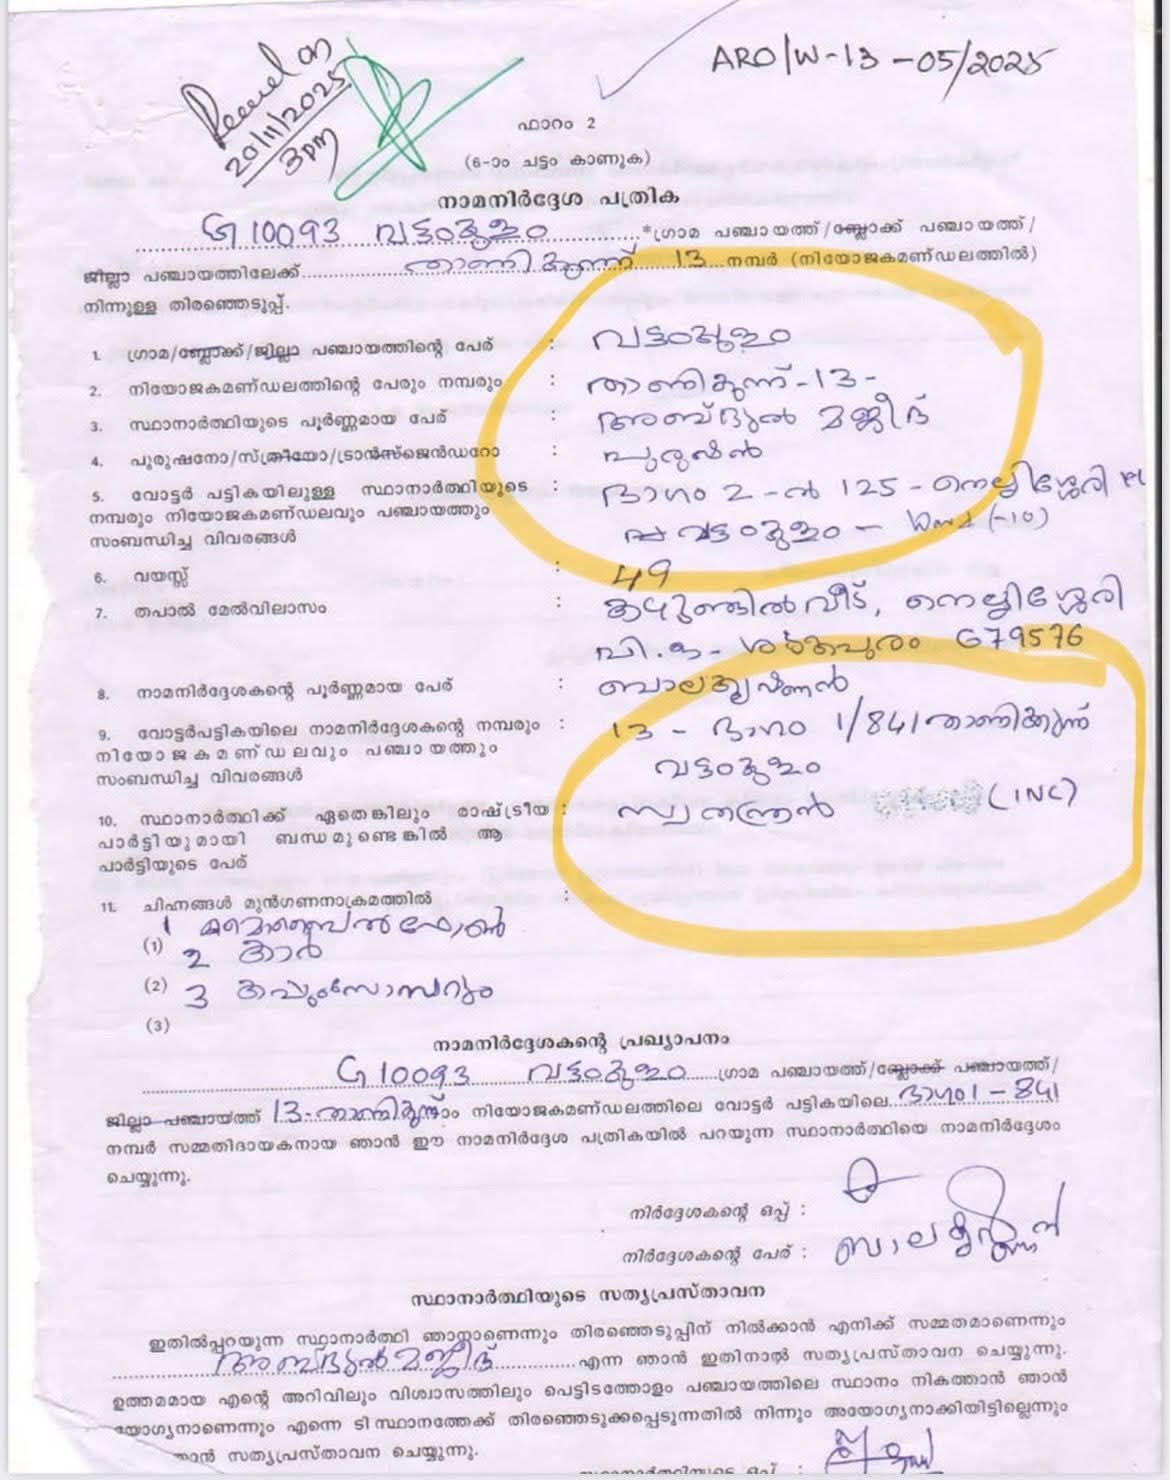 ARO/W-13-05/2025
20/11/2025
3pm
ഫാറം 2
(6-ാം ചട്ടം കാണുക)
നാമനിർദ്ദേശ പത്രിക
G10093 വട്ടംകുളം *ഗ്രാമ പഞ്ചായത്ത്/ബ്ലോക്ക് പഞ്ചായത്ത്/
ജില്ലാ പഞ്ചായത്തിലേക്ക് താണികുന്ന് 13 നമ്പർ (നിയോജകമണ്ഡലത്തിൽ)
നിന്നുള്ള തിരഞ്ഞെടുപ്പ്.
1. ഗ്രാമ/ബ്ലോക്ക്/ജില്ലാ പഞ്ചായത്തിന്റെ പേര് : വട്ടംകുളം
2. നിയോജകമണ്ഡലത്തിന്റെ പേരും നമ്പരും : താണികുന്ന്-13-
3. സ്ഥാനാർത്ഥിയുടെ പൂർണ്ണമായ പേര് : അബ്ദുൽ മജീദ്
4. പുരുഷനോ/സ്ത്രീയോ/ട്രാൻസ്ജെൻഡറോ : പുരുഷൻ
5. വോട്ടർ പട്ടികയിലുള്ള സ്ഥാനാർത്ഥിയുടെ : ഭാഗം 2-ൽ 125-നെല്ലിശ്ശേരി
നമ്പരും നിയോജകമണ്ഡലവും പഞ്ചായത്തും വട്ടംകുളം - (-10)
സംബന്ധിച്ച വിവരങ്ങൾ
6. വയസ്സ് : 49
7. തപാൽ മേൽവിലാസം : വീട്, നെല്ലിശ്ശേരി
പി.ഒ- ശുകപുരം 679576
8. നാമനിർദേശകന്റെ പൂർണ്ണമായ പേര് : ബാലകൃഷ്ണൻ
9. വോട്ടർപട്ടികയിലെ നാമനിർദേശകന്റെ നമ്പരും : 13 - ഭാഗം 1/841 താണിക്കുന്ന്
നിയോജകമണ്ഡലവും പഞ്ചായത്തും വട്ടംകുളം
സംബന്ധിച്ച വിവരങ്ങൾ
10. സ്ഥാനാർത്ഥിക്ക് ഏതെങ്കിലും രാഷ്ട്രീയ : സ്വതന്ത്രൻ (INC)
പാർട്ടിയുമായി ബന്ധമുണ്ടെങ്കിൽ ആ
പാർട്ടിയുടെ പേര്
11. ചിഹ്നങ്ങൾ മുൻഗണനാക്രമത്തിൽ :
(1) 1 മൊബൈൽ ഫോൺ
2 കാർ
(2) 3 കപ്പുംസോസറും
(3)
നാമനിർദ്ദേശകന്റെ പ്രഖ്യാപനം
G10093 വട്ടംകുളം ഗ്രാമ പഞ്ചായത്ത്/ബ്ലോക്ക് പഞ്ചായത്ത്/
ജില്ലാ പഞ്ചായത്ത് 13-താണികുന്ന്ാം നിയോജകമണ്ഡലത്തിലെ വോട്ടർ പട്ടികയിലെ ഭാഗം1-841
നമ്പർ സമ്മതിദായകനായ ഞാൻ ഈ നാമനിർദ്ദേശ പത്രികയിൽ പറയുന്ന സ്ഥാനാർത്ഥിയെ നാമനിർദ്ദേശം
ചെയ്യുന്നു.
നിർദ്ദേശകന്റെ ഒപ്പ് :
നിർദ്ദേശകന്റെ പേര് : ബാലകൃഷ്ണൻ
സ്ഥാനാർത്ഥിയുടെ സത്യപ്രസ്താവന
ഇതിൽപ്പറയുന്ന സ്ഥാനാർത്ഥി ഞാനാണെന്നും തിരഞ്ഞെടുപ്പിന് നിൽക്കാൻ എനിക്ക് സമ്മതമാണെന്നും
അബ്ദുൽ മജീദ് എന്ന ഞാൻ ഇതിനാൽ സത്യപ്രസ്താവന ചെയ്യുന്നു.
ഉത്തമമായ എന്റെ അറിവിലും വിശ്വാസത്തിലും പെട്ടിടത്തോളം പഞ്ചായത്തിലെ സ്ഥാനം നികത്താൻ ഞാൻ
യോഗ്യനാണെന്നും എന്നെ ടി സ്ഥാനത്തേക്ക് തിരഞ്ഞെടുക്കപ്പെടുന്നതിൽ നിന്നും അയോഗ്യനാക്കിയിട്ടില്ലെന്നും
ഞാൻ സത്യപ്രസ്താവന ചെയ്യുന്നു.
സ്ഥാനാർത്ഥിയുടെ ഒപ്പ് :